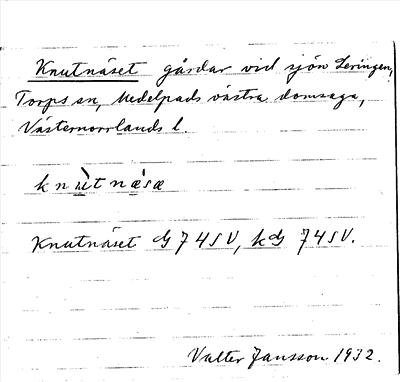 Knutnäset gårdar vid sjön Leringen,
Torps sn, Medelpads västra domsaga,
Västernorrlands l.
knùtnæ̀sæ
Knutnäset G 74 SV, kG 74 SV.
Valter Jansson 1932.